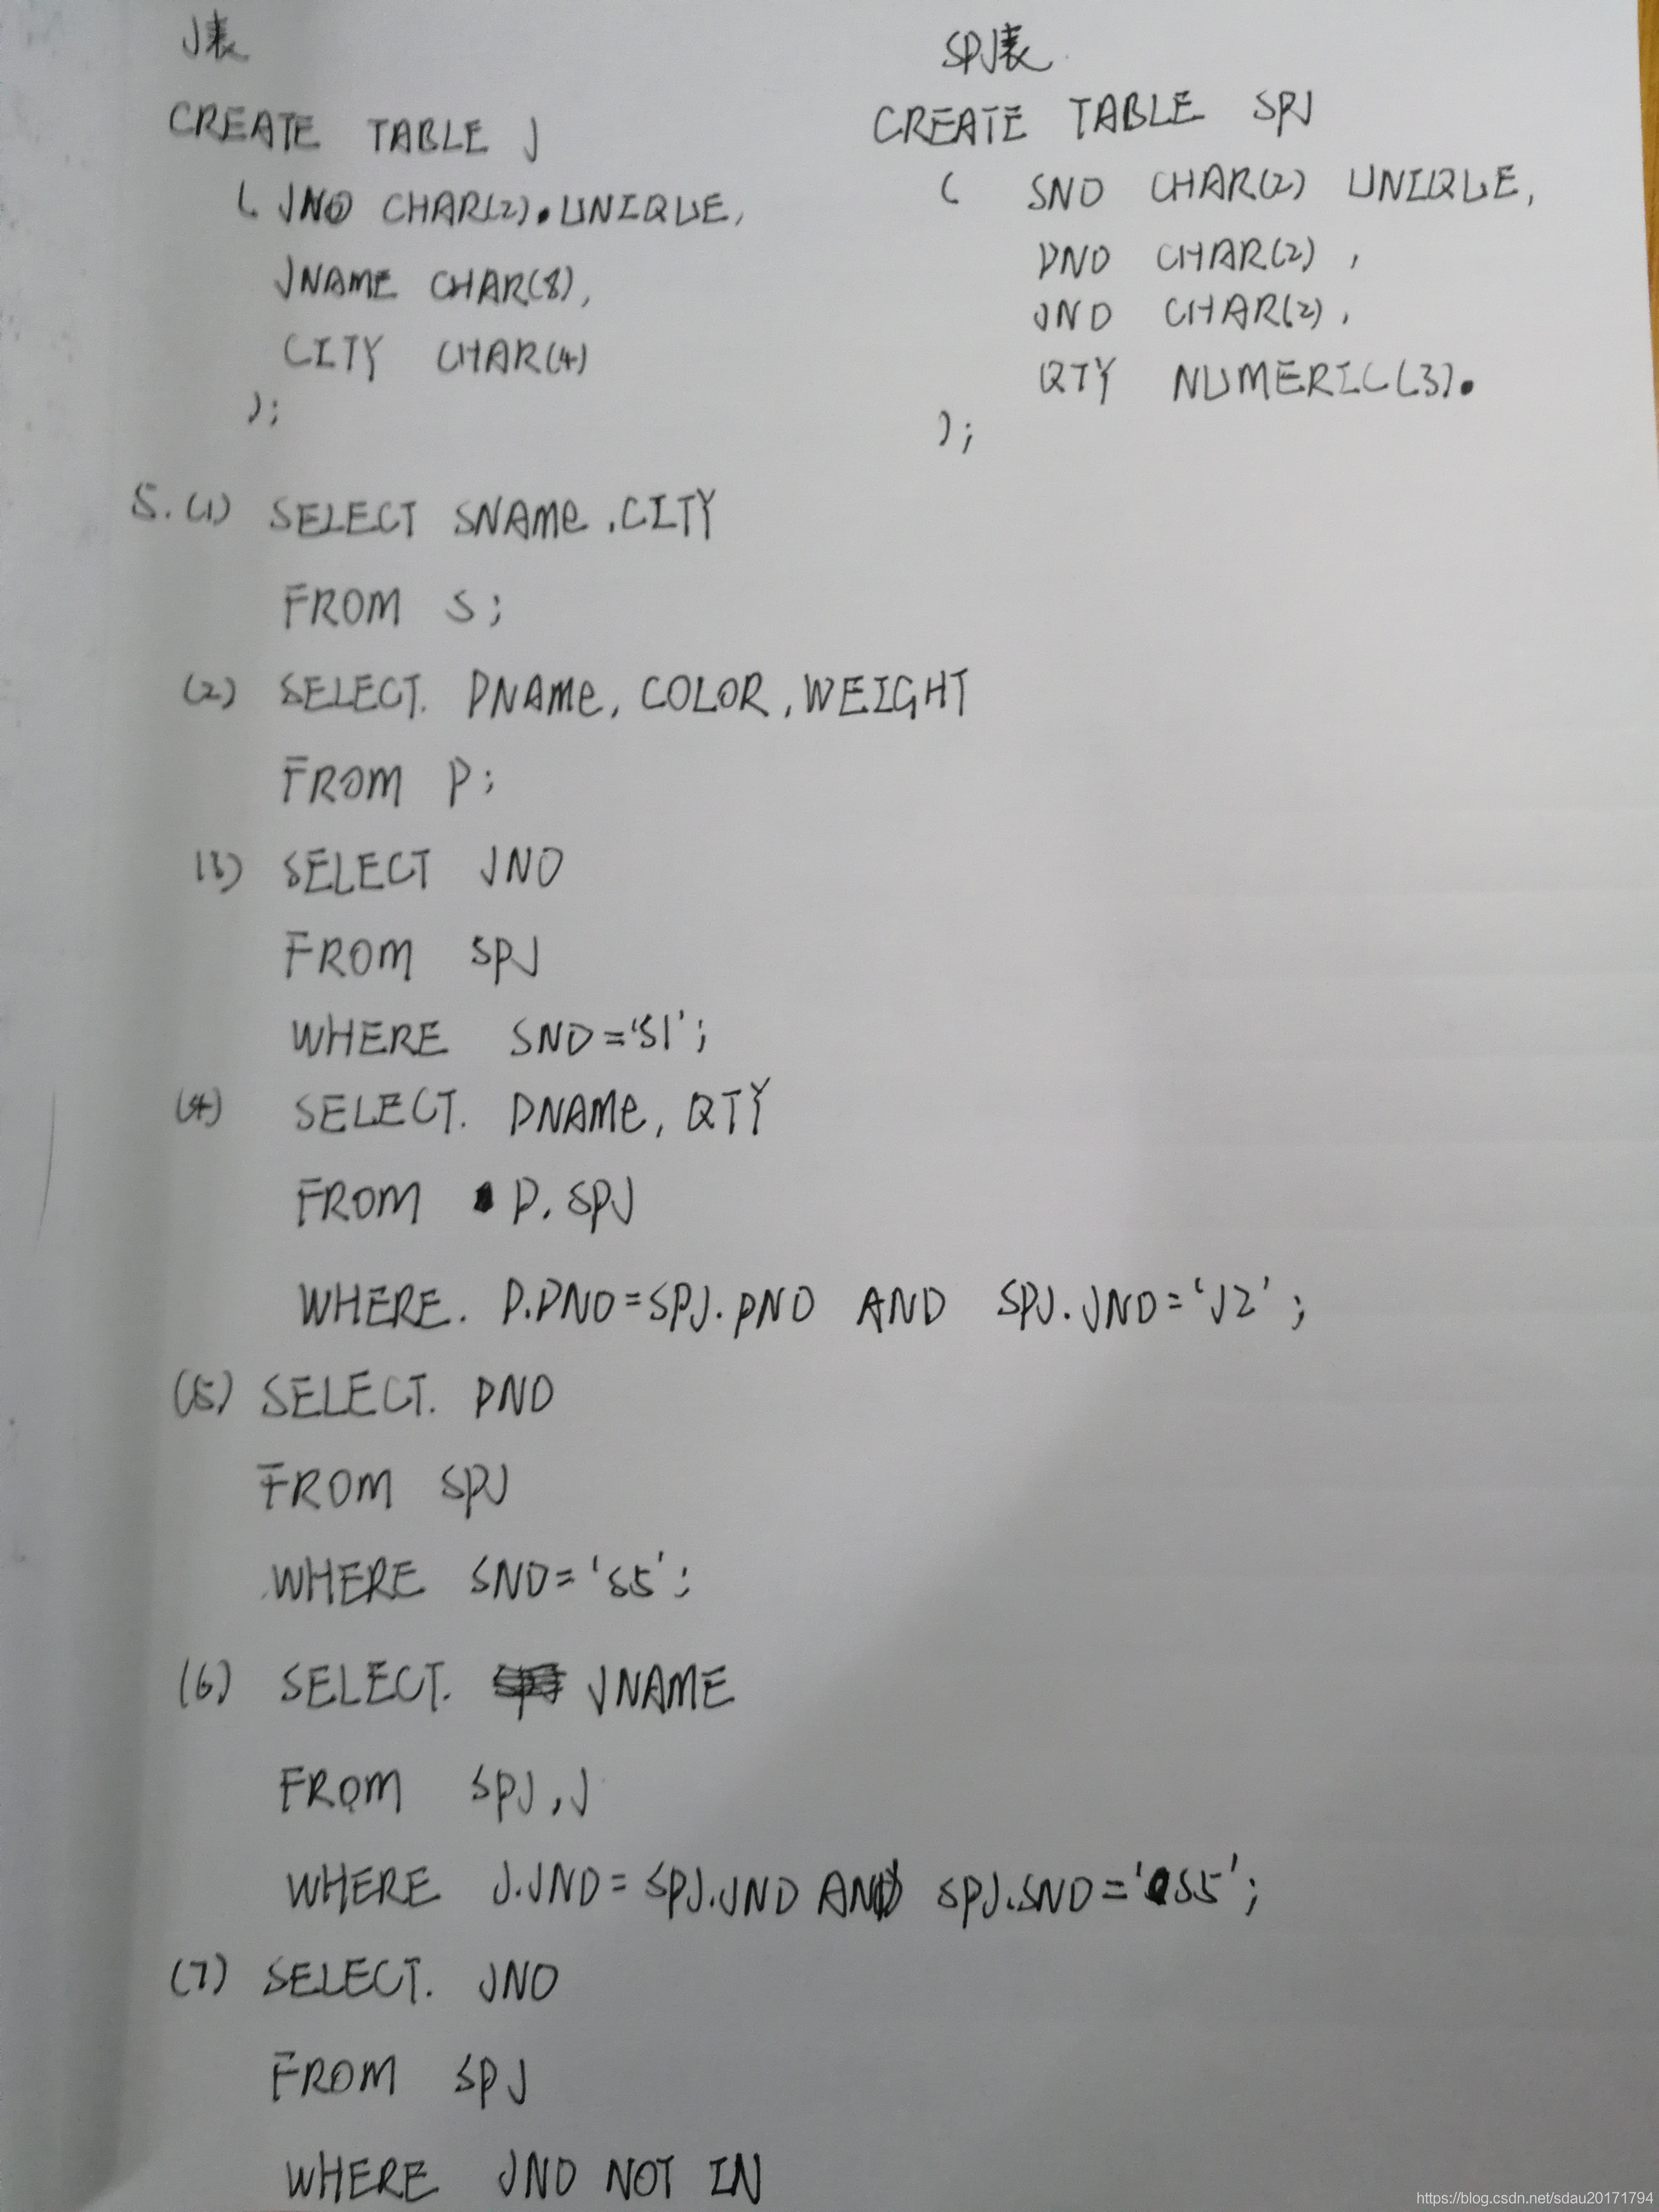 J表
CREATE TABLE J
( JNO CHAR(2).UNIQUE,
JNAME CHAR(8),
CITY CHAR(4)
);
SPJ表
CREATE TABLE SPJ
( SNO CHAR(2) UNIQUE,
PNO CHAR(2),
JNO CHAR(2),
QTY NUMERIC(3).
);
5.(1) SELECT SNAMe,CITY
FROM S;
(2) SELECT. PNAMe,COLOR,WEIGHT
FROM P;
(3) SELECT JNO
FROM SPJ
WHERE SNO='S1';
(4) SELECT. PNAMe,QTY
FROM P.SPJ
WHERE. P.PNO=SPJ.PNO AND SPJ.JNO='J2';
(5) SELECT. PNO
FROM SPJ
WHERE SNO='S5';
(6) SELECT. JNAME
FROM SPJ,J
WHERE J.JNO=SPJ.JNO AND SPJ.SNO='S5';
(7) SELECT. JNO
FROM SPJ
WHERE JNO NOT IN
https://blog.csdn.net/sdau20171794